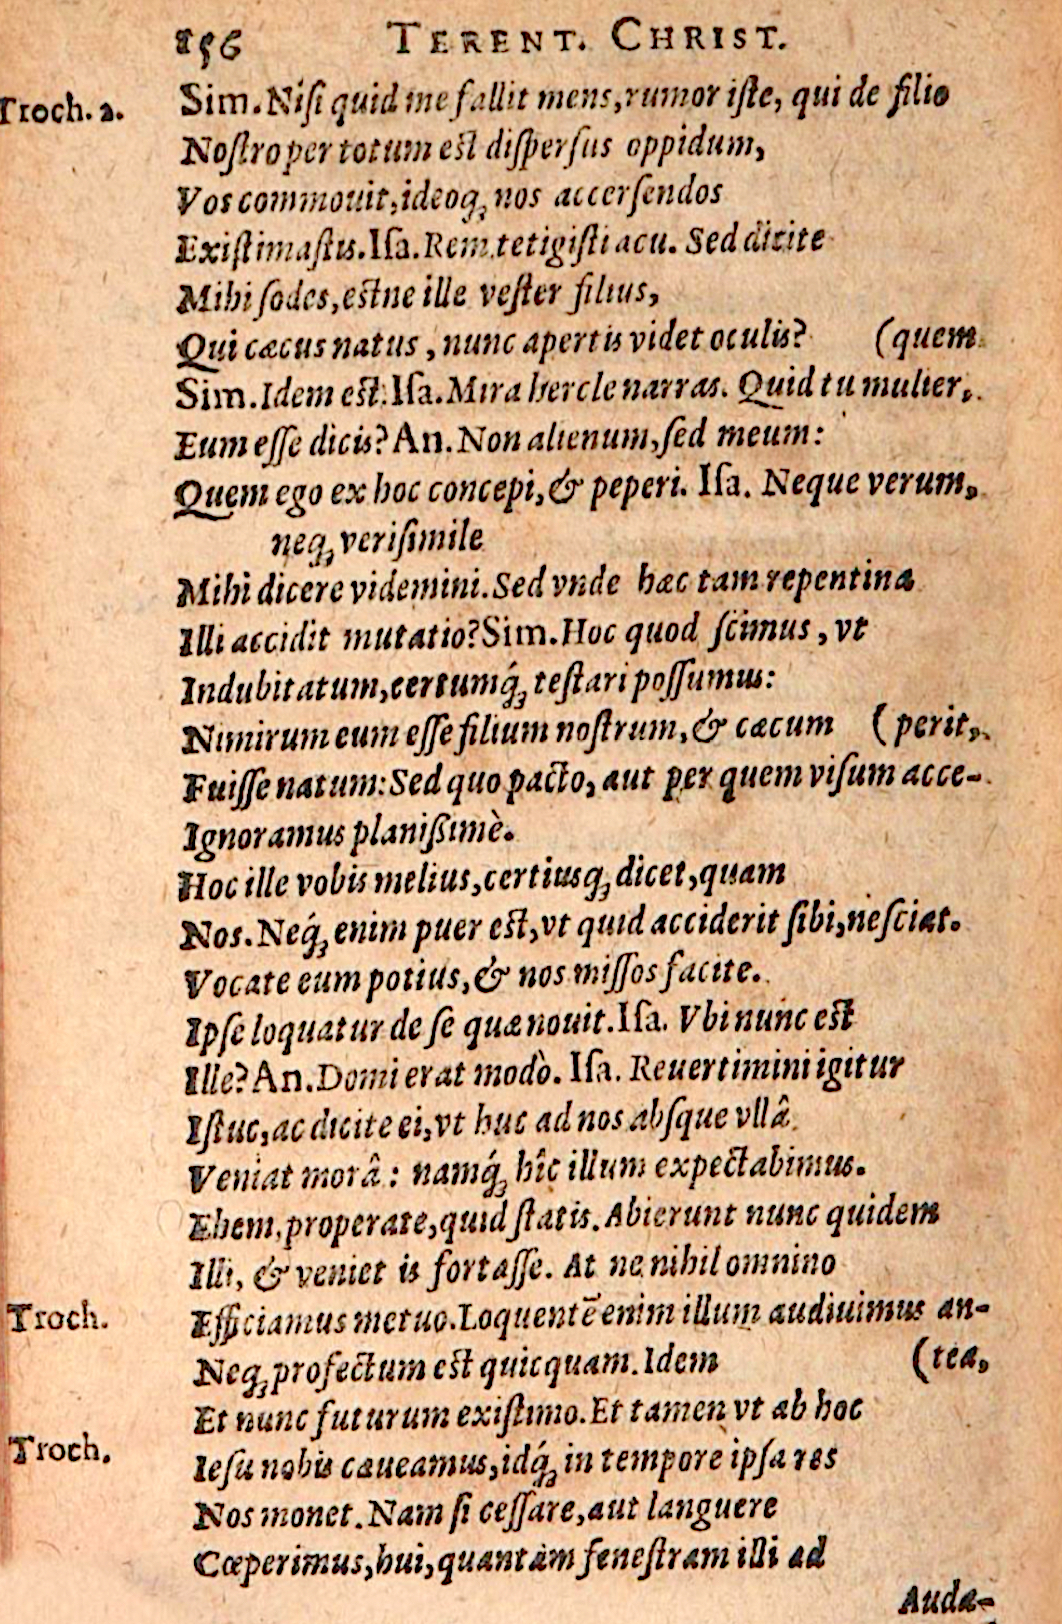 156 TERENT. CHRIST.
Troch. 2. Sim. Niſi quid me fallit mens, rumor iſte, qui de filio
Noſtro per totum eſt diſperſus oppidum,
Vos commouit, ideoq; nos accerſendos
Exiſtimaſtis. Iſa. Rem tetigiſti acu. Sed dicite
Mihi ſodes, eſtne ille veſter filius,
Qui cæcus natus, nunc apertis videt oculis? (quem
Sim. Idem eſt. Iſa. Mira hercle narras. Quid tu mulier,
Eum eſſe dicis? An. Non alienum, ſed meum:
Quem ego ex hoc concepi, & peperi. Iſa. Neque verum,
neq; veriſimile
Mihi dicere videmini. Sed vnde hæc tam repentina
Illi accidit mutatio? Sim. Hoc quod ſcimus, vt
Indubitatum, certumq́; teſtari poſſumus:
Nimirum eum eſſe filium noſtrum, & cæcum (perit,
Fuiſſe natum: Sed quo pacto, aut per quem viſum acce-
Ignoramus planißimè.
Hoc ille vobis melius, certiusq; dicet, quam
Nos. Neq́; enim puer eſt, vt quid acciderit ſibi, neſciat.
Vocate eum potius, & nos miſſos facite.
Ipſe loquatur de ſe quæ nouit. Iſa. Vbi nunc eſt
Ille? An. Domi erat modò. Iſa. Reuertimini igitur
Iſtuc, ac dicite ei, vt huc ad nos abſque vllâ
Veniat morâ: namq́; hîc illum expectabimus.
Ehem, properate, quid ſtatis. Abierunt nunc quidem
Illi, & veniet is fortaſſe. At ne nihil omnino
Troch. Efficiamus metuo. Loquentē enim illum audiuimus an-
Neq; profectum eſt quicquam. Idem (tea,
Et nunc futurum exiſtimo. Et tamen vt ab hoc
Troch. Ieſu nobis caueamus, idq́; in tempore ipſa res
Nos monet. Nam ſi ceſſare, aut languere
Cœperimus, hui, quantam feneſtram illi ad
Auda-